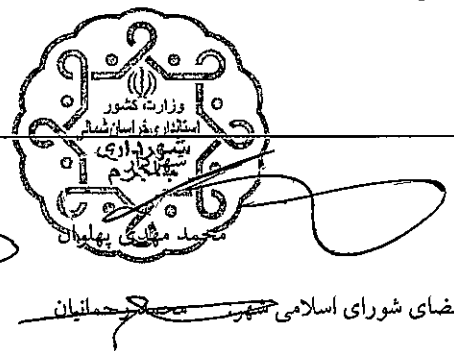 وزارت کشور
استانداری خراسان شمالی
شهرداری
محمد مهدی پهلوان
ضای شورای اسلامی شهر: محمد رحمانیان